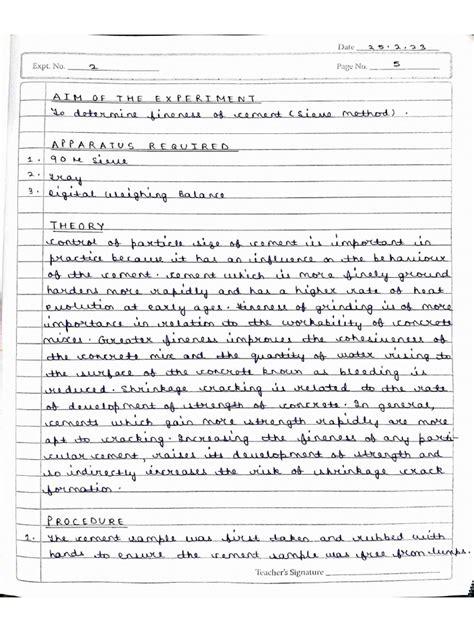 Date 25.2.23
Expt. No. 2
Page No. 5
AIM OF THE EXPERIMENT
To determine fineness of cement (Sieve method).
APPARATUS REQUIRED
1. 90 M Sieve
2. Tray
3. Digital Weighing Balance
THEORY
Control of particle size of cement is important in
practice because it has an influence on the behaviour
of the cement. Cement which is more finely ground
hardens more rapidly and has a higher rate of heat
evolution at early ages. Fineness of grinding is of more
importance in relation to the workability of concrete
mixes. Greater fineness improves the cohesiveness of
the concrete mix and the quantity of water rising to
the surface of the concrete known as bleeding is
reduced. Shrinkage cracking is related to the rate
of development of strength of concrete. In general,
cements which gain more strength rapidly are more
apt to cracking. Increasing the fineness of any parti-
cular cement, raises its development of strength and
so indirectly increases the risk of shrinkage crack
formation.
PROCEDURE
1. The cement sample was first taken and rubbed with
hands to ensure the cement sample was free from lumps.
Teacher's Signature